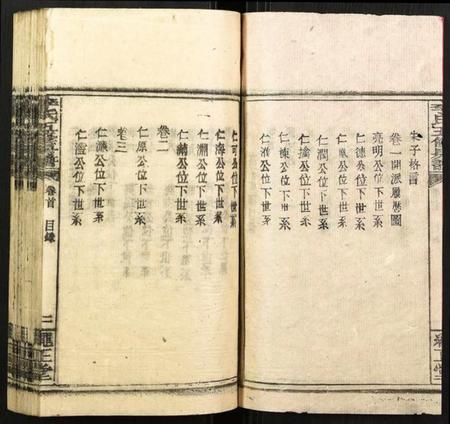 朱子格言
卷一開派履歷圖
亮明公位下世系
仁德公位下世系
仁公位下世系
仁公位下世系
仁潤公位下世系
仁棟公位下世系
仁公位下世系
仁公位下世系
仁海公位下世系
仁淵公位下世系
仁公位下世系
卷二
仁原公位下世系
卷三
仁公位下世系
仁公位下世系
李氏五修族譜
卷首 目錄
二